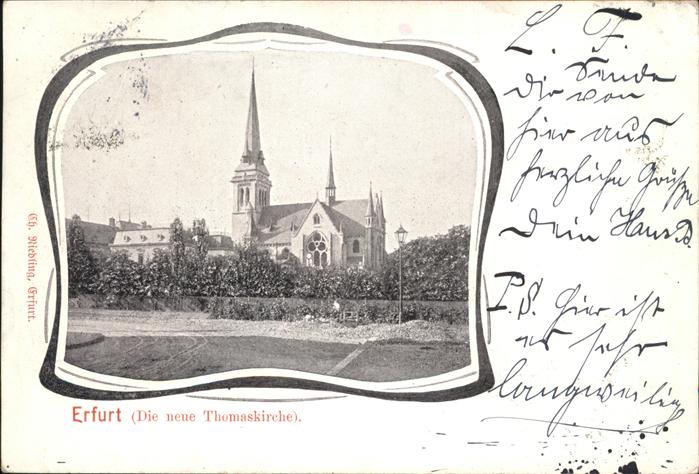 L. F.
Sende
dir von
hier aus
herzliche Grüsse
Dein Hans B.
P.S. hier ist
es sehr
langweilig
Ch. Riedling, Erfurt.
Erfurt (Die neue Thomaskirche).